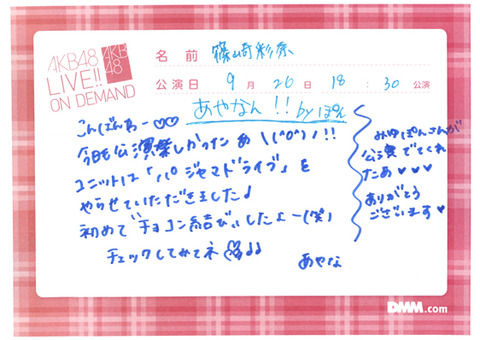 AKB48
LIVE!!
ON DEMAND
AKB
48
名前 篠崎彩奈
公演日 9月26日 18:30公演
あやなん!! by ぽん
こんばんわー♡♡
今日も公演楽しかったぁ\(^o^)/!!
ユニットは「パジャマドライブ」を
やらせていただきました♪
初めて“チョコン結び”したよー(笑)
チェックしてみてネ♪♪
あやな
みゆぽんさんが
公演でてくれ
たぁ♥♥♥
ありがとう
ございます♥
DMM.com